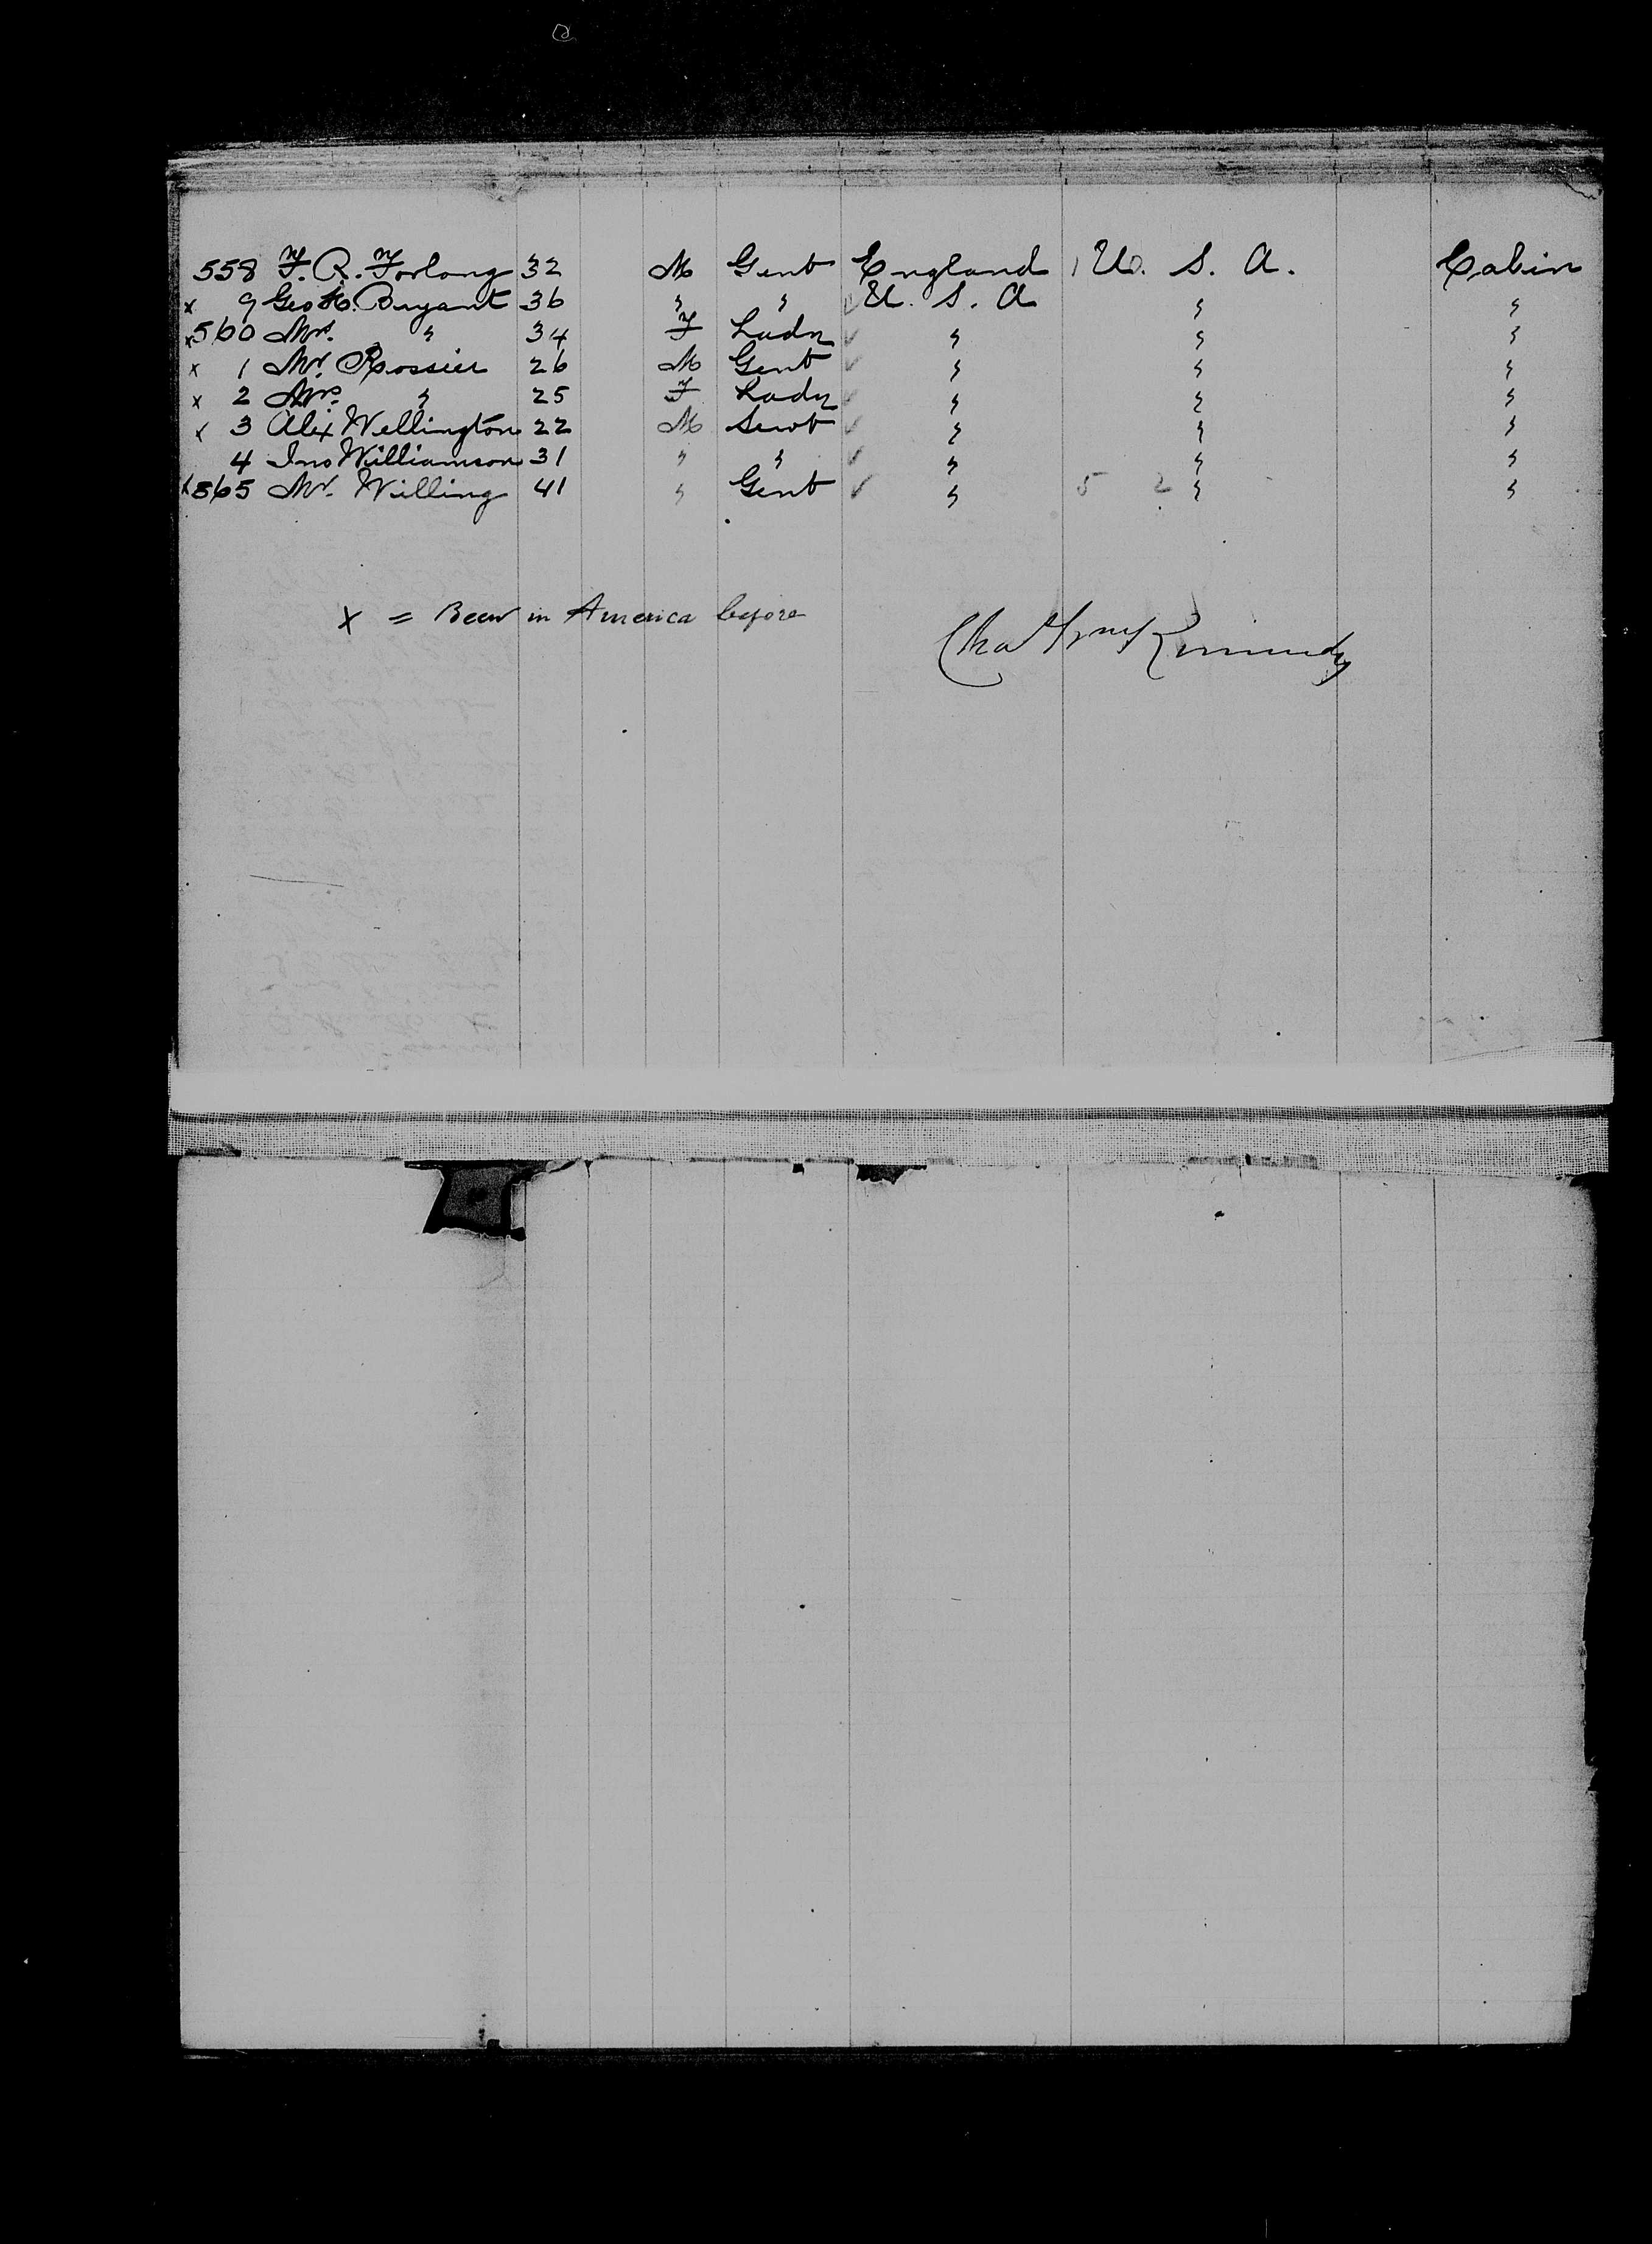 558 F. R. Forlong 32 M Gent England 1 U. S. A. Cabin
x 9 Geo H. Bryant 36 " " ✓ U. S. A " "
x 560 Mrs. " 34 F Lady ✓ " " "
x 1 Mr. Rossier 26 M Gent ✓ " " "
x 2 Mrs. " 25 F Lady ✓ " " "
x 3 Alix Wellington 22 M Servt ✓ " " "
4 Jno Williamson 31 " " ✓ " " "
x 565 Mr. Willing 41 " Gent ✓ " 5 2 " "
x = Been in America before
Kennedy